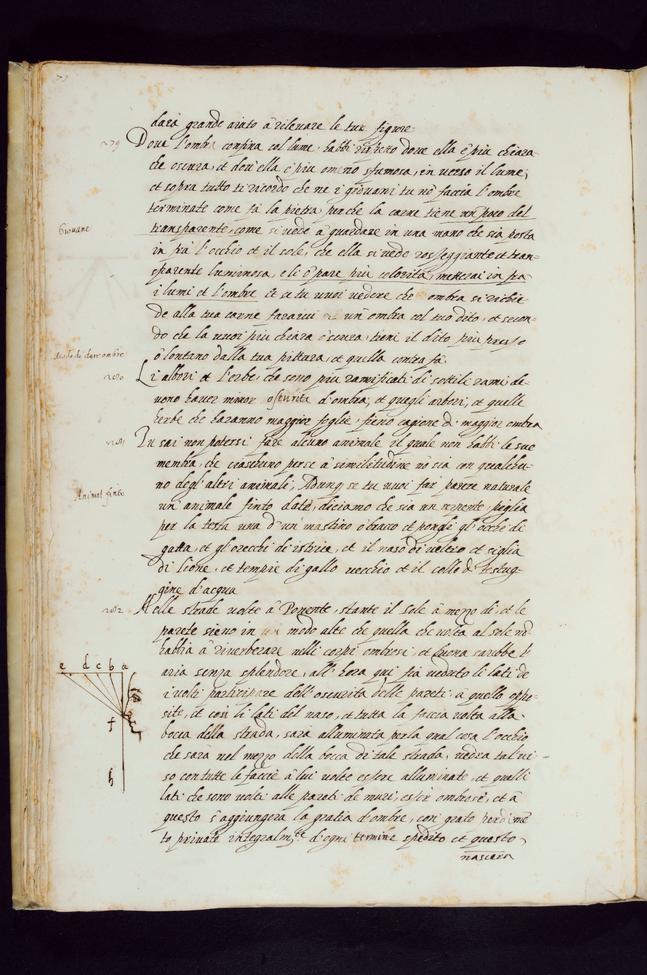 darà grande aiuto à rileuare le tue figure
279
Doue l'ombra confina col lume, habbi rispetto doue ella è più chiara
che oscura, et dou'ella è piu o meno sfumosa, in uerso il lume;
et sopra tutto ti ricordo che ne i giouani tu nõ faccia l'ombre
terminate come fà la pietra, perche la carne tiene un poco del
Giouane
transparente, come si uede à guardare in una mano che sia posta
in frà l'occhio et il sole, che ella si uede rosseggiante et tran-
sparente luminosa, e li è pare più colorita, metterai in fra
i lumi et l'ombre. Et se tu uuoi uedere che ombra si richie
de alla tua carne faraiui sù un'ombra col tuo dito, et secon-
do che la uuoi più chiara ò scura, tieni il dito più presso
Modo di dare ombre
ò lontano dalla tua pittura, et quella contra fà.
280
Li albori et l'erbe, che sono piu ramificati di sottili rami de-
uono hauer minor oscurità d'ombra, et quegli arbori, et quelle
herbe che haranno maggior foglie fieno cagione di maggior ombra
281
Tu sai non potersi fare alcuno animale il quale non habbi le sue
membra, che ciaschuno per se à similitudine nõ sia con qualchu-
no degl'altri animali, Adunq se tu uuoi far parere naturale
Animal finto
un'animale finto date, diciamo che sia un serpente, piglia
per la testa una d'un mastino ò bracco et pongli gl'occhi di
gatta, et gl'orecchi di istrice, et il naso di ueltro et ciglia
di lione, et tempie di gallo uecchio et il collo di testug-
gine d'acqua
282
Nelle strade uolte à Ponente, stante il sole à mezzo dì, et le
parete sieno in modo alte che quella che uolta al sole nõ
habbia à riuerberare nelli corpi ombrosi, et buona sarebbe l'
aria senza splendore, all'hora qui fia ueduto li lati de
i uolti partecipare dell'oscurità delle pareti à quello oppo-
site, et così li lati del naso, et tutta la faccia uolta alla
bocca della strada, sara alluminata per la qual cosa l'occhio
che sarà nel mezzo della bocca di tale strada, uedra tal ui-
so con tutte le faccie à lui uolte essere alluminate, et quelli
lati che sono uolti alle pareti de muri, esser ombrosi, et à
questo s'aggiungera la gratia d'ombre, con grato perdime
to priuate integralm.te d'ogni termine spedito et questo
nascera
e d c b a
f
h